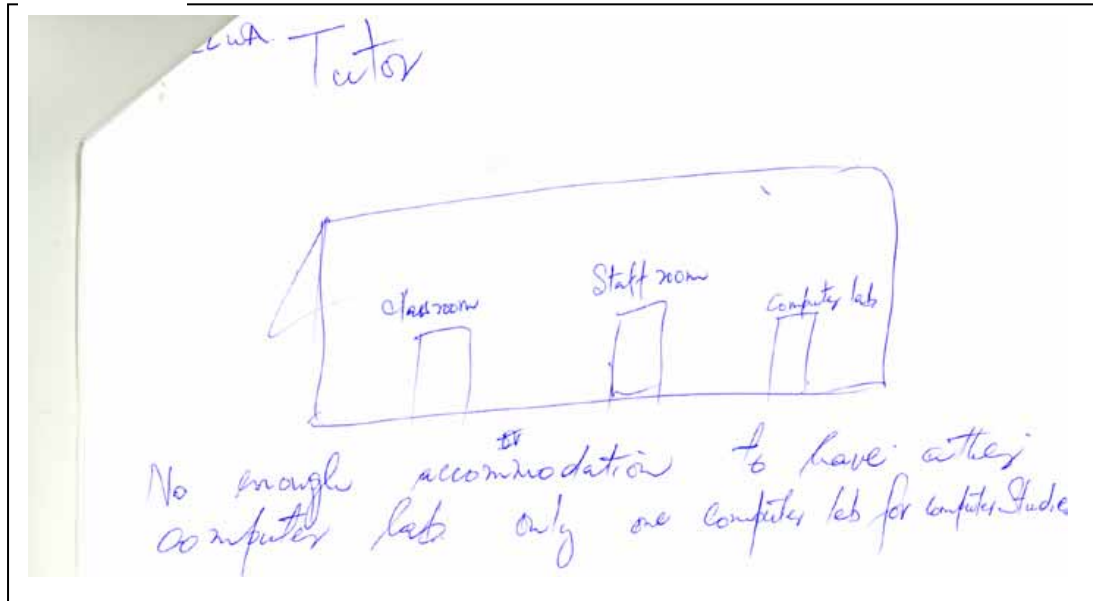 Tutor
Classroom
Staff room
Computer lab
No enough accommodation to have
computer lab only one computer lab for computer Studies